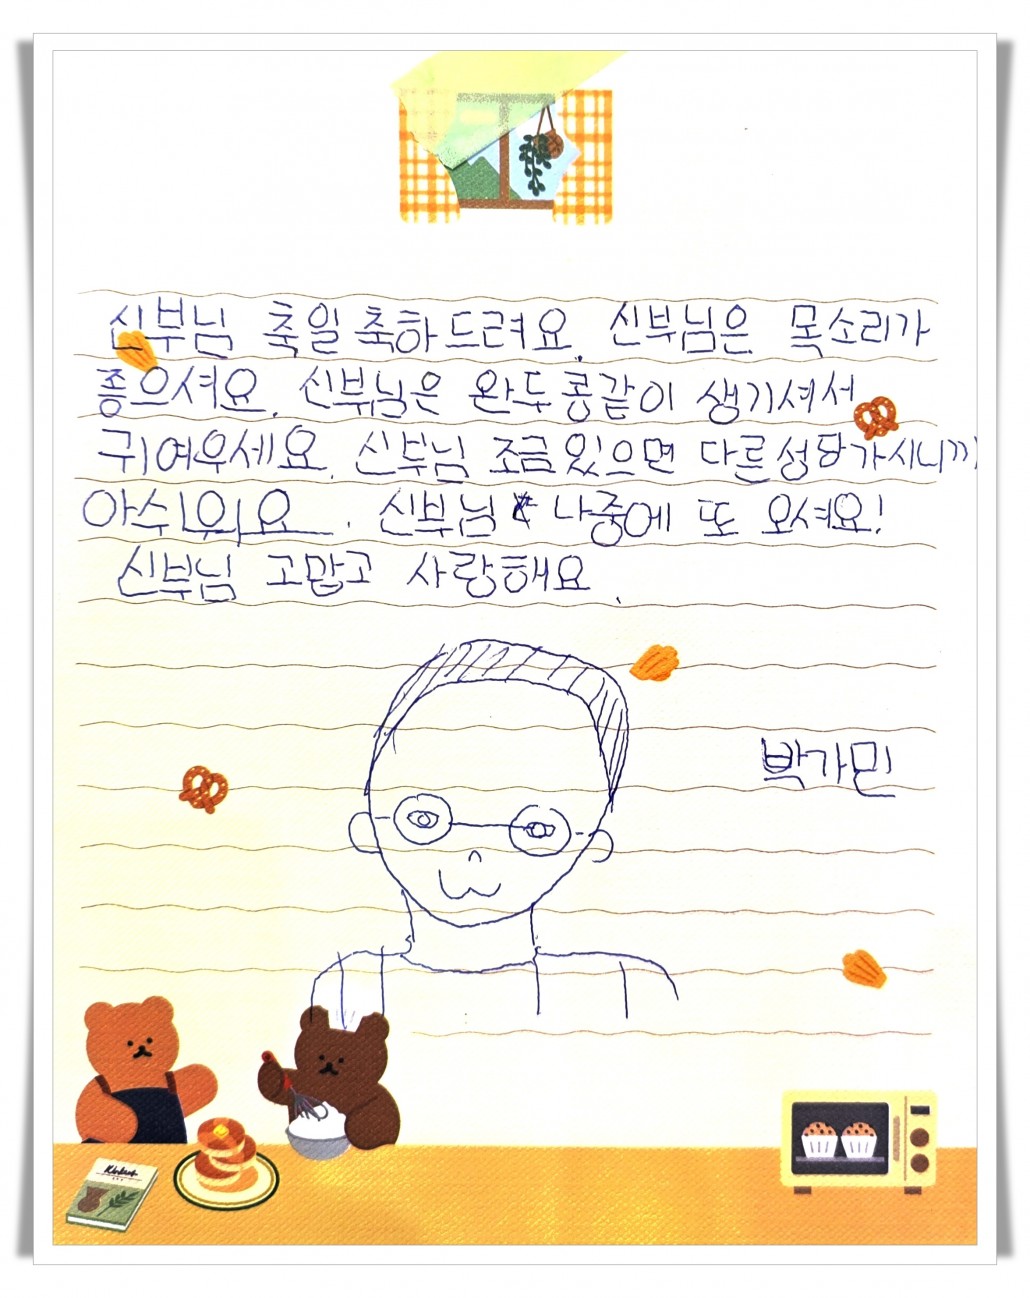 신부님 축일 축하드려요. 신부님은 목소리가
좋으셔요. 신부님은 완두콩같이 생기셔서
귀여우세요. 신부님 조금있으면 다른성당가시니까
아쉬워요. 신부님 나중에 또 오셔요!
신부님 고맙고 사랑해요.
박가민